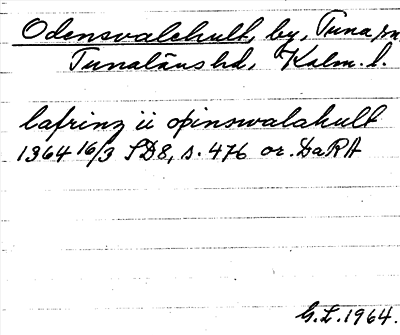 Odensvalehult, by, Tuna sn
Tunaläns hd, Kalm. l.
lafrinz ii opinswalahult
1364 16/3 SD8, s. 476 or. DaRA
G.L. 1964.